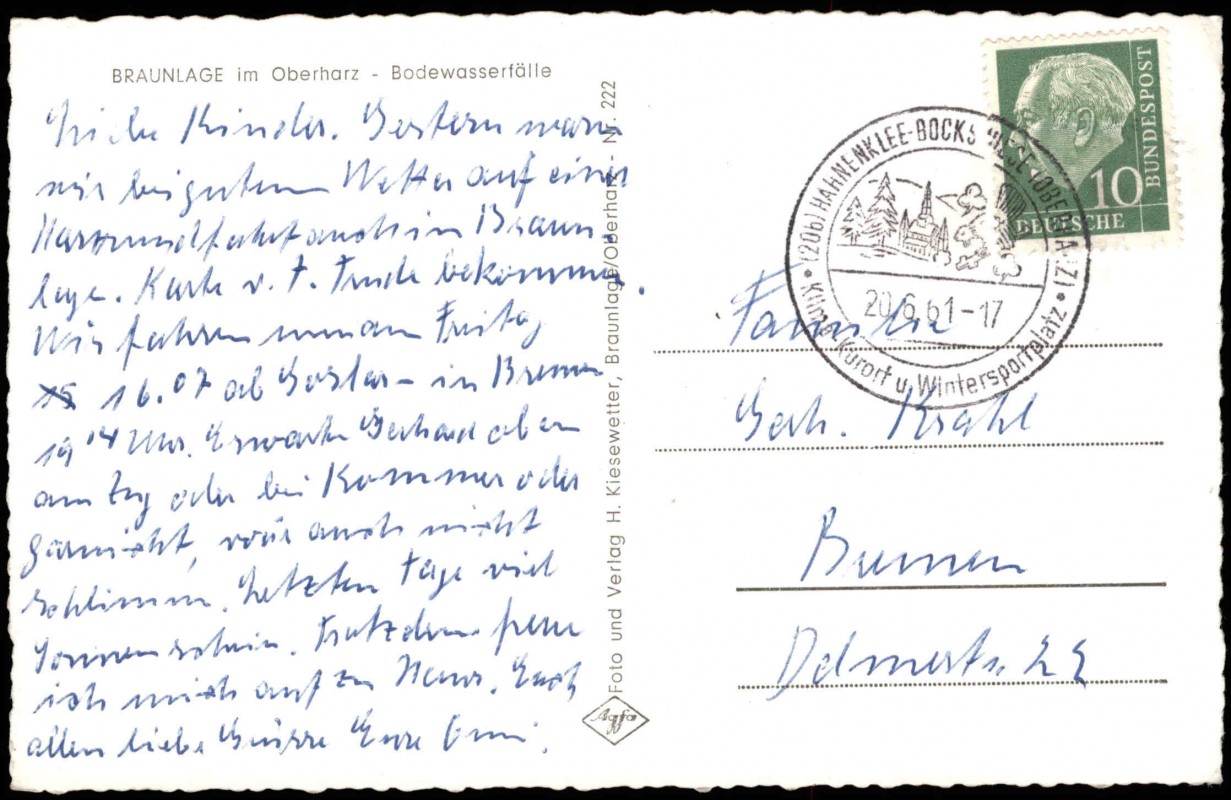 BRAUNLAGE im Oberharz - Bodewasserfälle
Kinder. Gestern waren
wir bei gutem Wetter auf einer
Harzrundfahrt auch in Braun-
lage. Karte v. T. Trude bekommen.
Wir fahren nun am Freitag
16.07 ab Goslar - in Bremen
19 14 Uhr. Erwarte Gerhard oben
am Zug oder bei Kommer oder
garnicht, wär auch nicht
schlimm. Letzten Tage viel
Sonnenschein. Trotzdem freue
ich mich auf zu Haus. Euch
allen liebe Grüsse Eure Omi.
Foto und Verlag H. Kiesewetter, Braunlage/Oberharz - Nr. 222
Agfa
DEUTSCHE
BUNDESPOST
10
(20b) HAHNENKLEE-BOCKSWIESE (OBERHARZ)
20.6.61-17
Klimat. Kurort u. Wintersportplatz
Familie
Gerh. Krahl
Bremen
Delmestr. 22